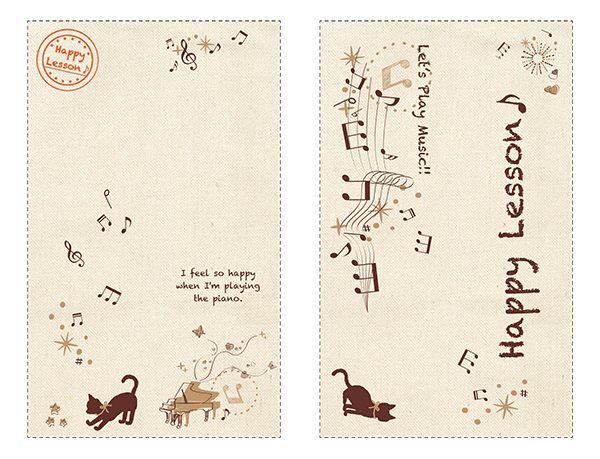 Happy
Lesson♪
I feel so happy
when I'm playing
the piano.
Let's Play Music!!
Happy Lesson♪